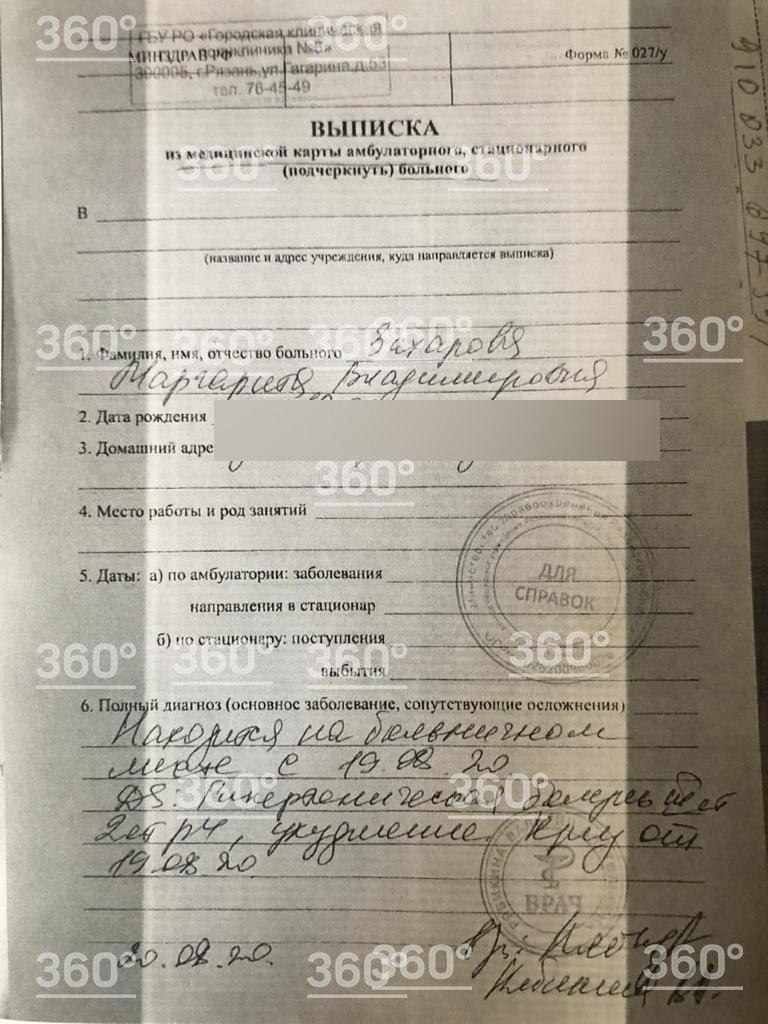 ГБУ РО «Городская клиническая
поликлиника №6»
МИНЗДРАВ РФ
390005, г.Рязань, ул. Гагарина, д.53
тел. 76-45-49
Форма № 027/у
ВЫПИСКА
из медицинской карты амбулаторного, стационарного
(подчеркнуть) больного
В
(название и адрес учреждения, куда направляется выписка)
1. Фамилия, имя, отчество больного Захарова
Маргарита Владимировна
2. Дата рождения
3. Домашний адре
4. Место работы и род занятий
5. Даты: а) по амбулатории: заболевания
направления в стационар
б) по стационару: поступления
выбытия
ДЛЯ
СПРАВОК
6. Полный диагноз (основное заболевание, сопутствующие осложнения)
Находится на больничном
листе с 19.08.20
DS: Гипертоническая болезнь
2ст, ухудшение. Криз от
19.08.20
ВРАЧ
20.08.20.
360°